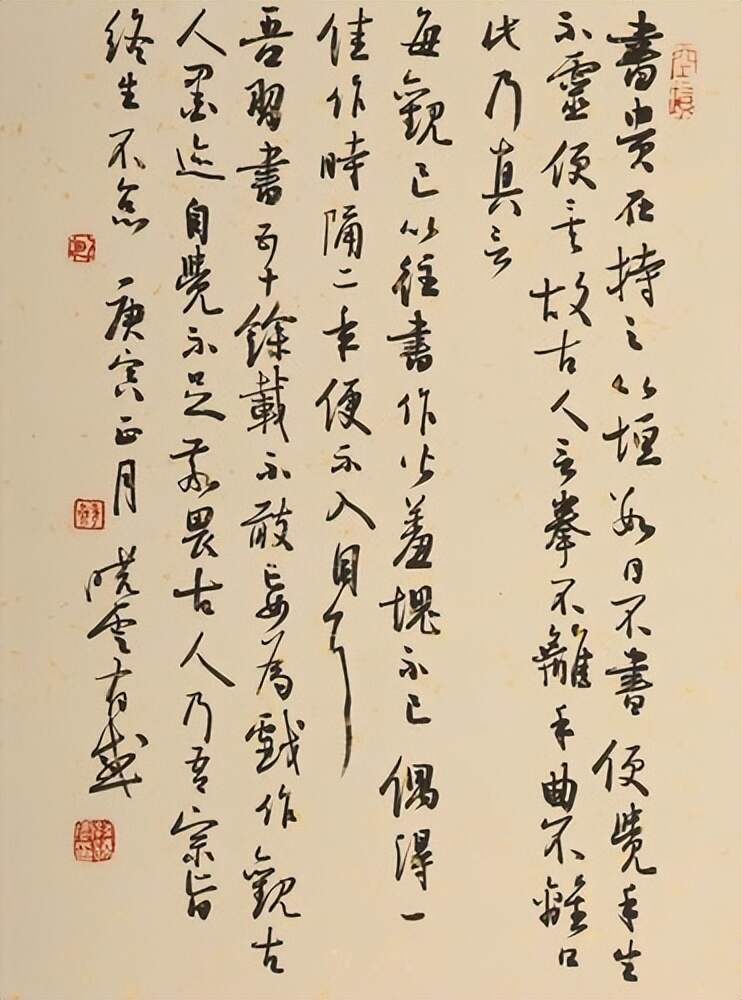 書貴在持之以恒數日不書便覺手生
不靈便矣故古人言拳不離手曲不離口
此乃真言
每觀已以往書作必羞愧不已偶得一
佳作時隔二年便不入目了
吾習書五十餘載不敢妄為戲作觀古
人墨迹自覺不足敬畏古人乃吾宗旨
終生不怠 庚寅正月 曉雲有感